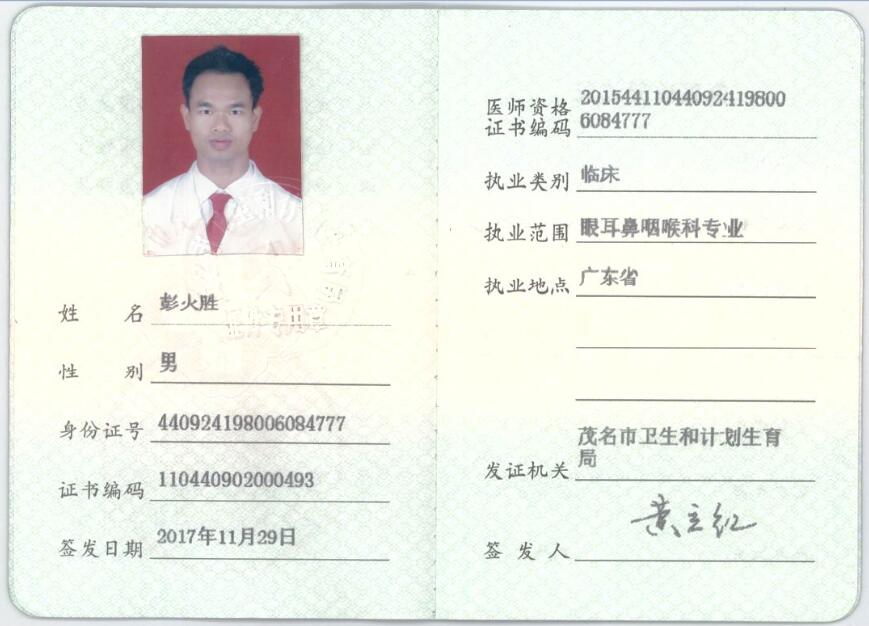 姓 名 彭火胜
性 别 男
身份证号 440924198006084777
证书编码 110440902000493
签发日期 2017年11月29日
医师资格 20154411044092419800
证书编码 6084777
执业类别 临床
执业范围 眼耳鼻咽喉科专业
执业地点 广东省
茂名市卫生和计划生育
发证机关 局
签 发 人